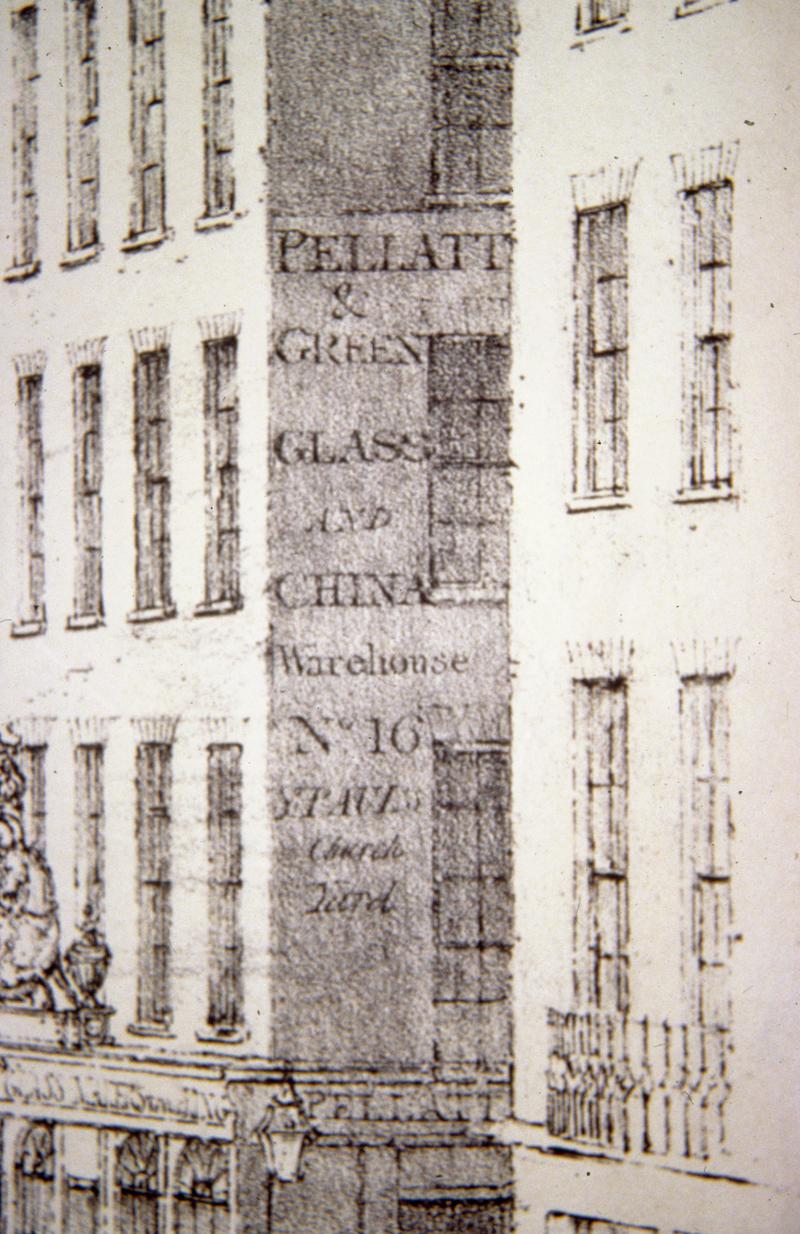 PELLATT
&
GREEN
GLASS
AND
CHINA
Warehouse
No 16
St PAULs
Church
Yard
PELLATT